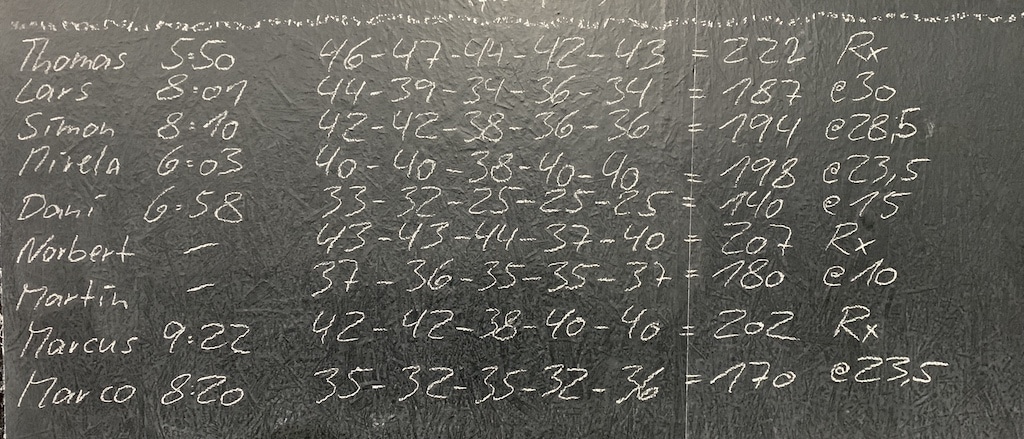 Thomas 5:50 46-47-44-42-43 = 222 Rx
Lars 8:01 44-39-34-36-34 = 187 @30
Simon 8:10 42-42-38-36-36 = 194 @28,5
Mirela 6:03 40-40-38-40-40 = 198 @23,5
Dani 6:58 33-32-25-25-25 = 140 @15
Norbert - 43-43-44-37-40 = 207 Rx
Martin - 37-36-35-35-37 = 180 @10
Marcus 9:22 42-42-38-40-40 = 202 Rx
Marco 8:20 35-32-35-32-36 = 170 @23,5